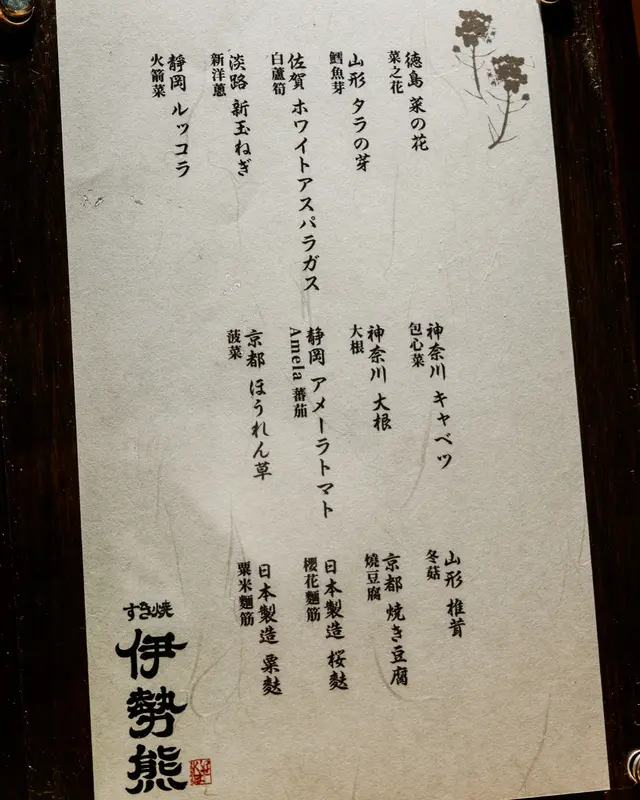 徳島 菜の花
菜之花
山形 タラの芽
鱈魚芽
佐賀 ホワイトアスパラガス
白蘆筍
淡路 新玉ねぎ
新洋蔥
静岡 ルッコラ
火箭菜
神奈川 キャベツ
包心菜
神奈川 大根
大根
静岡 アメーラトマト
Amela 蕃茄
京都 ほうれん草
菠菜
山形 椎茸
冬菇
京都 焼き豆腐
燒豆腐
日本製造 桜麩
櫻花麵筋
日本製造 粟麩
粟米麵筋
すき焼
伊勢熊